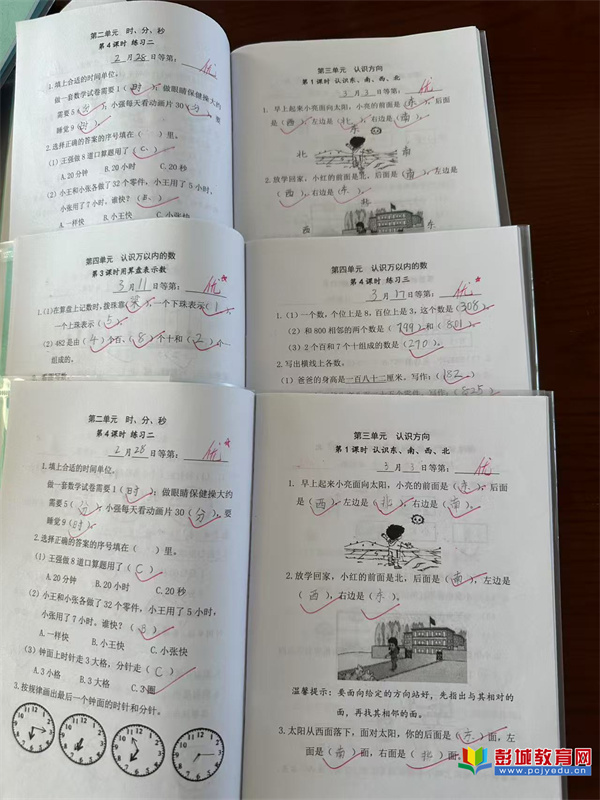 第二单元 时、分、秒
第4课时 练习二
2月28日等第: 优
1.填上合适的时间单位。
做一套数学试卷需要1(时),做眼睛保健操大约
需要5(分),小强每天看动画片30(分),要
睡觉9(时)。
2.选择正确的答案的序号填在( )里。
(1)王强做8道口算题用了(C)
A.20分钟 B.20小时 C.20秒
(2)小王和小张各做了32个零件,小王用了5小时,
小张用了7小时,谁快?(B)
A.一样快 B.小王快 C.小张快
第三单元 认识方向
第1课时 认识东、南、西、北
3月3日等第: 优
1. 早上起来小亮面向太阳,小亮的前面是(东),后面
是(西),左边是(北),右边是(南)。
东
北 南
2.放学回家,小红的前面是北,后面是(南),左边是
(西),右边是(东)。
北
西 东
第四单元 认识万以内的数
第3课时用算盘表示数
3月11日等第: 优
1.(1)在算盘上记数时,按珠靠(梁),一个下珠表示(1),
一个上珠表示(5)。
(2)482是由(4)个百、(8)个十和(2)个一
组成的。
第四单元 认识万以内的数
第4课时 练习三
3月17日等第: 优
1.(1)一个数,个位上是8,百位上是3,这个数是(308)。
(2)和800相邻的两个数是(799)和(801)。
(3)2个百和7个十组成的数是(270)。
2.写出横线上各数。
(1)爸爸的身高是一百八十二厘米。写作:(182)
第二单元 时、分、秒
第4课时 练习二
2月28日等第: 优
1.填上合适的时间单位。
做一套数学试卷需要1(时),做眼睛保健操大约
需要5(分),小强每天看动画片30(分),要
睡觉9(时)。
2.选择正确的答案的序号填在( )里。
(1)王强做8道口算题用了(C)
A.20分钟 B.20小时 C.20秒
(2)小王和小张各做了32个零件,小王用了5小时,
小张用了7小时,谁快?(B)
A.一样快 B.小王快 C.小张快
(3)钟面上时针走3大格,分针走(C)
A.3小格 B.3大格 C.3圈
3.按规律画出最后一个钟面的时针和分针。
第三单元 认识方向
第1课时 认识东、南、西、北
3月3日等第: 优
1. 早上起来小亮面向太阳,小亮的前面是(东),后面
是(西),左边是(北),右边是(南)。
2.放学回家,小红的前面是北,后面是(南),左边是
(西),右边是(东)。
温馨提示:要面向给定的方向站好,先指出与其相对的
面,再找其相邻的面。
3.太阳从西面落下,面对太阳,你的后面是(东)面,左
面是(南)面,右面是(北)面。
彭城教育网
www.pcjyedu.cn